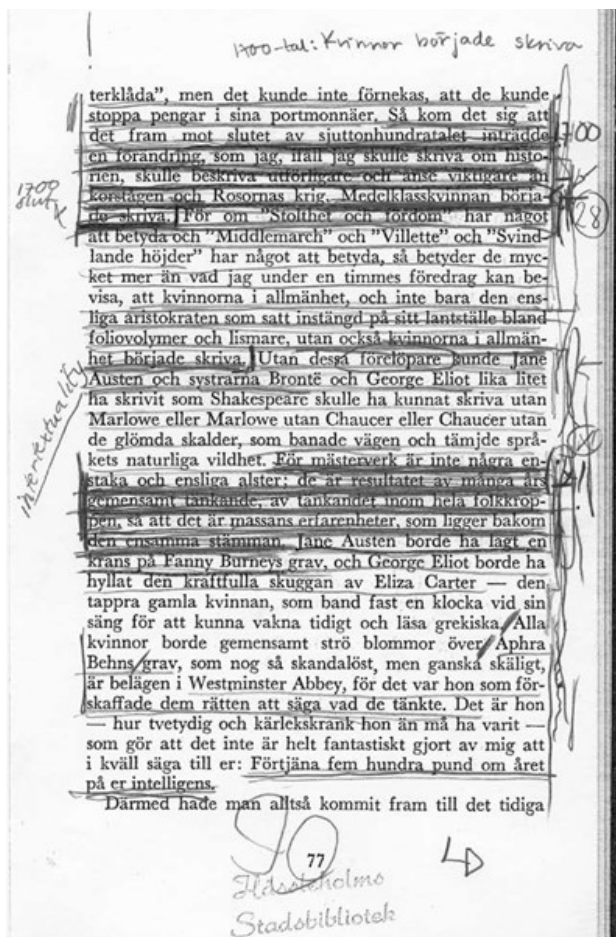 1700-tal: Kvinnor började skriva
terklåda”, men det kunde inte förnekas, att de kunde
stoppa pengar i sina portmonnäer. Så kom det sig att
det fram mot slutet av sjuttonhundratalet inträdde
1700
en förändring, som jag, ifall jag skulle skriva om histo-
rien, skulle beskriva utförligare och anse viktigare än
1700
slut
korstågen och Rosornas krig. Medelklasskvinnan börja-
de skriva. För om ”Stolthet och fördom” har något
28
att betyda och ”Middlemarch” och ”Villette” och ”Svind-
lande höjder” har något att betyda, så betyder de myc-
ket mer än vad jag under en timmes föredrag kan be-
visa, att kvinnorna i allmänhet, och inte bara den ens-
liga aristokraten som satt instängd på sitt lantställe bland
foliovolymer och lismare, utan också kvinnorna i allmän-
het började skriva. Utan dessa förelöpare kunde Jane
Austen och systrarna Brontë och George Eliot lika litet
ha skrivit som Shakespeare skulle ha kunnat skriva utan
Marlowe eller Marlowe utan Chaucer eller Chaucer utan
intertextuality
de glömda skalder, som banade vägen och tämjde språ-
kets naturliga vildhet. För mästerverk är inte några en-
staka och ensliga alster; de är resultatet av många års
gemensamt tänkande, av tänkandet inom hela folkkrop-
pen, så att det är massans erfarenheter, som ligger bakom
den ensamma stämman. Jane Austen borde ha lagt en
krans på Fanny Burneys grav, och George Eliot borde ha
hyllat den kraftfulla skuggan av Eliza Carter — den
tappra gamla kvinnan, som band fast en klocka vid sin
säng för att kunna vakna tidigt och läsa grekiska. Alla
kvinnor borde gemensamt strö blommor över Aphra
Behns grav, som nog så skandalöst, men ganska skäligt,
är belägen i Westminster Abbey, för det var hon som för-
skaffade dem rätten att säga vad de tänkte. Det är hon
— hur tvetydig och kärlekskrank hon än må ha varit —
som gör att det inte är helt fantastiskt gjort av mig att
i kväll säga till er: Förtjäna fem hundra pund om året
på er intelligens.
Därmed hade man alltså kommit fram till det tidiga
77
Stadsbibliotek